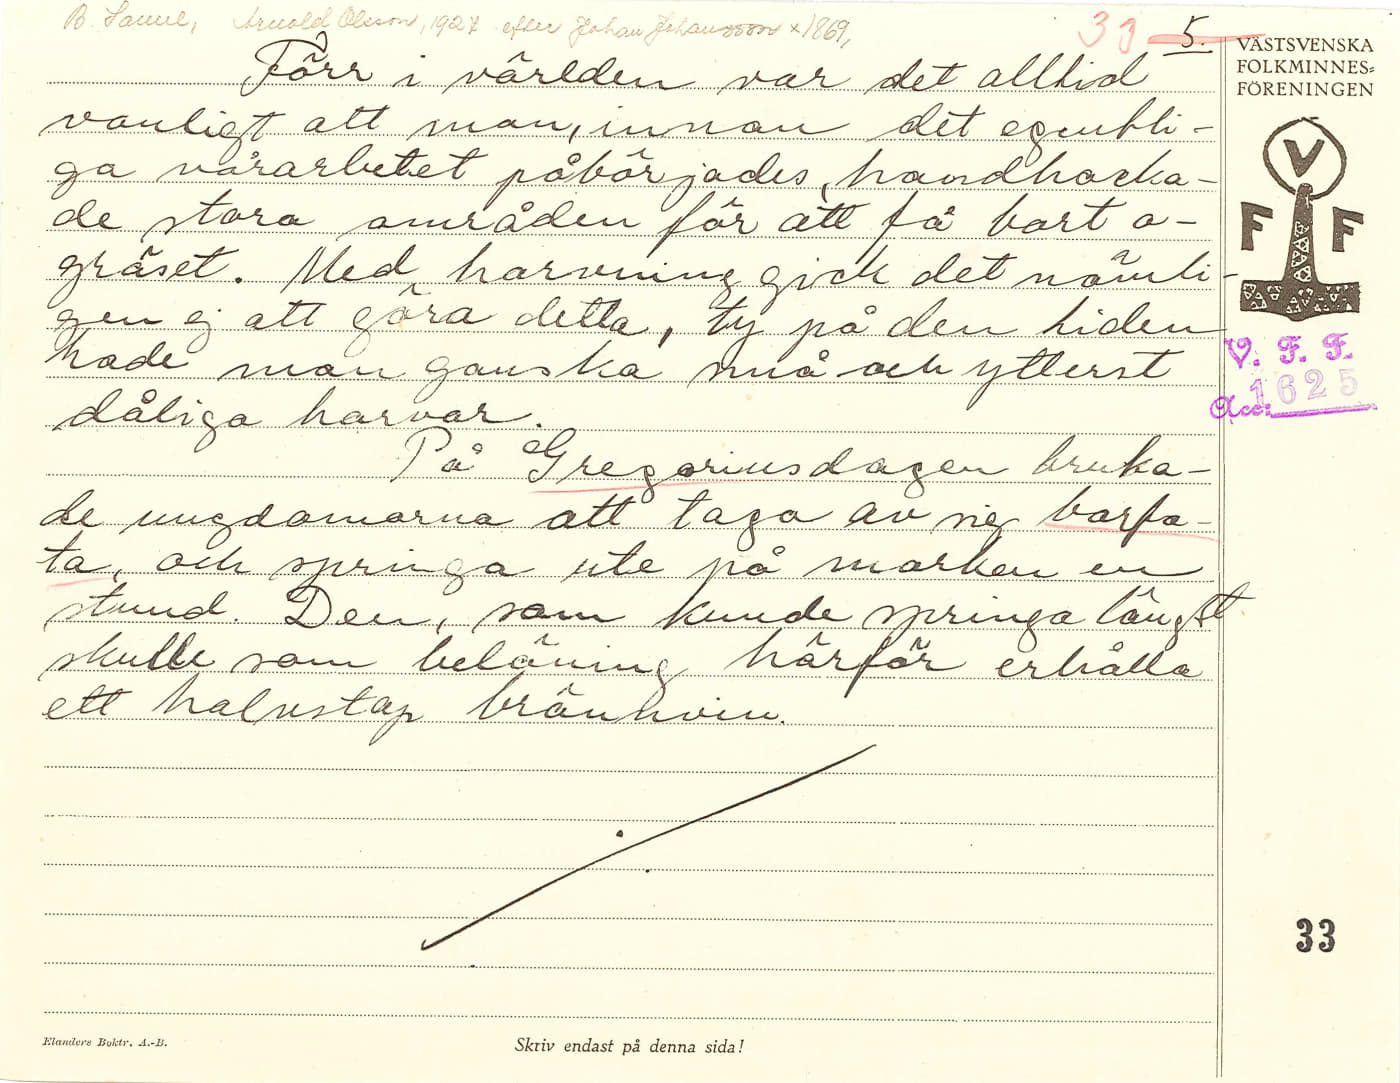 B. Sanne, Arnold Olsson, 1927 efter Johan Johansson x 1869,
33 5.
Förr i världen var det alltid
vanligt att man, innan det egentli-
ga vårarbetet påbörjades, handhacka-
de stora områden för att få bort o-
gräset. Med harvning gick det nämli-
gen ej att göra detta, ty på den tiden
hade man ganska små och ytterst
dåliga harvar.
På Gregoriusdagen bruka-
de ungdomarna att taga av sig barfo-
ta, och springa ute på marken en
stund. Den, som kunde springa längst
skulle som belöning härför erhålla
ett halvstop brännvin.
VÄSTSVENSKA
FOLKMINNES=
FÖRENINGEN
V
F F
V. F. F.
1625
Acc:
33
Elanders Boktr. A.-B.
Skriv endast på denna sida!